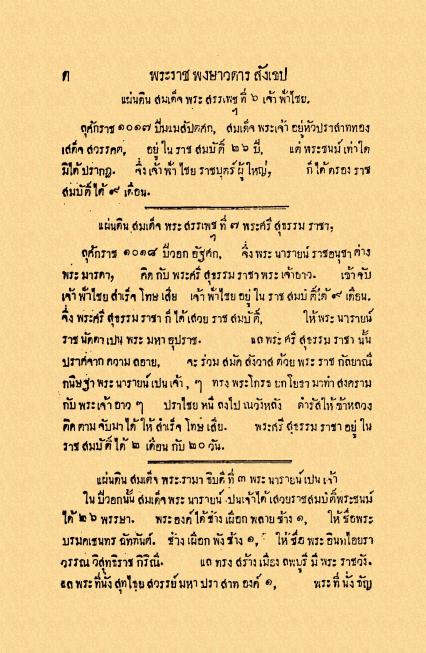 ๓ พระราช พงษาวดาร สังเขป
แผ่นดิน สมเด็จ พระ สรรเพชฐ ที่ ๖ เจ้า ฟ้าไชย.
ฤศักราช ๑๐๑๗ ปีมแมสัปตศก, สมเด็จ พระเจ้า อยู่หัวปราสาททอง
เสด็จ สวรรคต, อยู่ ใน ราช สมบัติ ๒๖ ปี, แต่ พระชนม์ เท่าใด
มิได้ ปรากฎ. จึ่ง เจ้า ฟ้า ไชย ราชบุตร์ ผู้ ใหญ่, ก็ ได้ ครอง ราช
สมบัติ ได้ ๙ เดือน.
แผ่นดิน สมเด็จ พระ สรรเพชฐ ที่ ๗ พระศรี สุธรรม ราชา,
ฤศักราช ๑๐๑๘ ปีวอก อัฐศก, จึ่ง พระ นารายน์ ราชอนุชา ต่าง
พระ มารดา, คิด กับ พระศรี สุธรรม ราชา พระ เจ้าอาว. เข้า จับ
เจ้า ฟ้าไชย สำเร็จ โทษ เสีย เจ้า ฟ้าไชย อยู่ ใน ราช สมบัติได้ ๙ เดือน.
จึ่ง พระศรี สุธรรม ราชา ก็ ได้ เสวย ราช สมบัติ, ให้ พระ นารายน์
ราช นัดดา เปน พระ มหา อุปราช. แต พระ ศรี สุธรรม ราชา นั้น
ปราศจาก ความ ลอาย, จะ ร่วม สมัค สังวาส ด้วย พระ ราช กัลยาณี
กนิษฐา พระ นารายน์ เปน เจ้า, ๆ ทรง พระโกรธ ยกโยธา มาทำ สงคราม
กับ พระเจ้า อาว ๆ ปราไชย หนี ลงไป ณวังหลัง ดำรัสให้ ข้าหลวง
ติด ตาม จับมา ได้ ให้ สำเร็จ โทษ เสีย. พระศรี สุธรรม ราชา อยู่ ใน
ราช สมบัติ ได้ ๒ เดือน กับ ๒๐ วัน.
แผ่นดิน สมเด็จ พระรามา ธิบดี ที่ ๓ พระ นารายน์ เปน เจ้า
ใน ปีวอกนั้น สมเด็จ พระ นารายน์ เปนเจ้าได้ เสวยราชสมบัติพระชนม์
ได้ ๒๖ พรรษา. พระองค์ ได้ ช้าง เผือก พลาย ช้าง ๑, ให้ ชื่อพระ
บรมคเชนทร ฉัททันต์. ช้าง เผือก พัง ช้าง ๑, ให้ ชื่อ พระ อินทไอยรา
วรรณ วิสุทธิราช กิริณี. แต ทรง สร้าง เมือง ลพบุรี มี พระ ราชวัง.
แต พระ ที่นั่ง สุทไธย สวรรย์ มหา ปรา สาท องค์ ๑, พระ ที่ นั่ง ธัญ